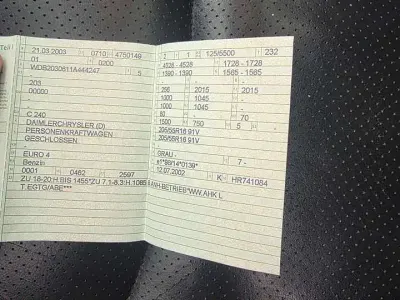 Teil I
21.03.2003 0710 4750149
01 0200
WDB2030611A444247 5
-
203
00060
-
-
C 240
DAIMLERCHRYSLER (D)
PERSONENKRAFTWAGEN
GESCHLOSSEN
-
EURO 4
Benzin
0001 0462 2597
ZU 18-20:H.BIS 1455*ZU 7.1-8.3:H.1085 B.ANH-BETRIEB*WW.AHK L
T.EGTG/ABE***
2 1 125/5500 232
4528 - 4528 1728 - 1728
1390 - 1390 1565 - 1565
- - -
256 2015 2015
1000 1045 -
1000 1045 -
80 70
1500 750 5 -
205/55R16 91V
205/55R16 91V
-
GRAU - 7 -
e1*98/14*0139*
12.07.2002 K HR741084